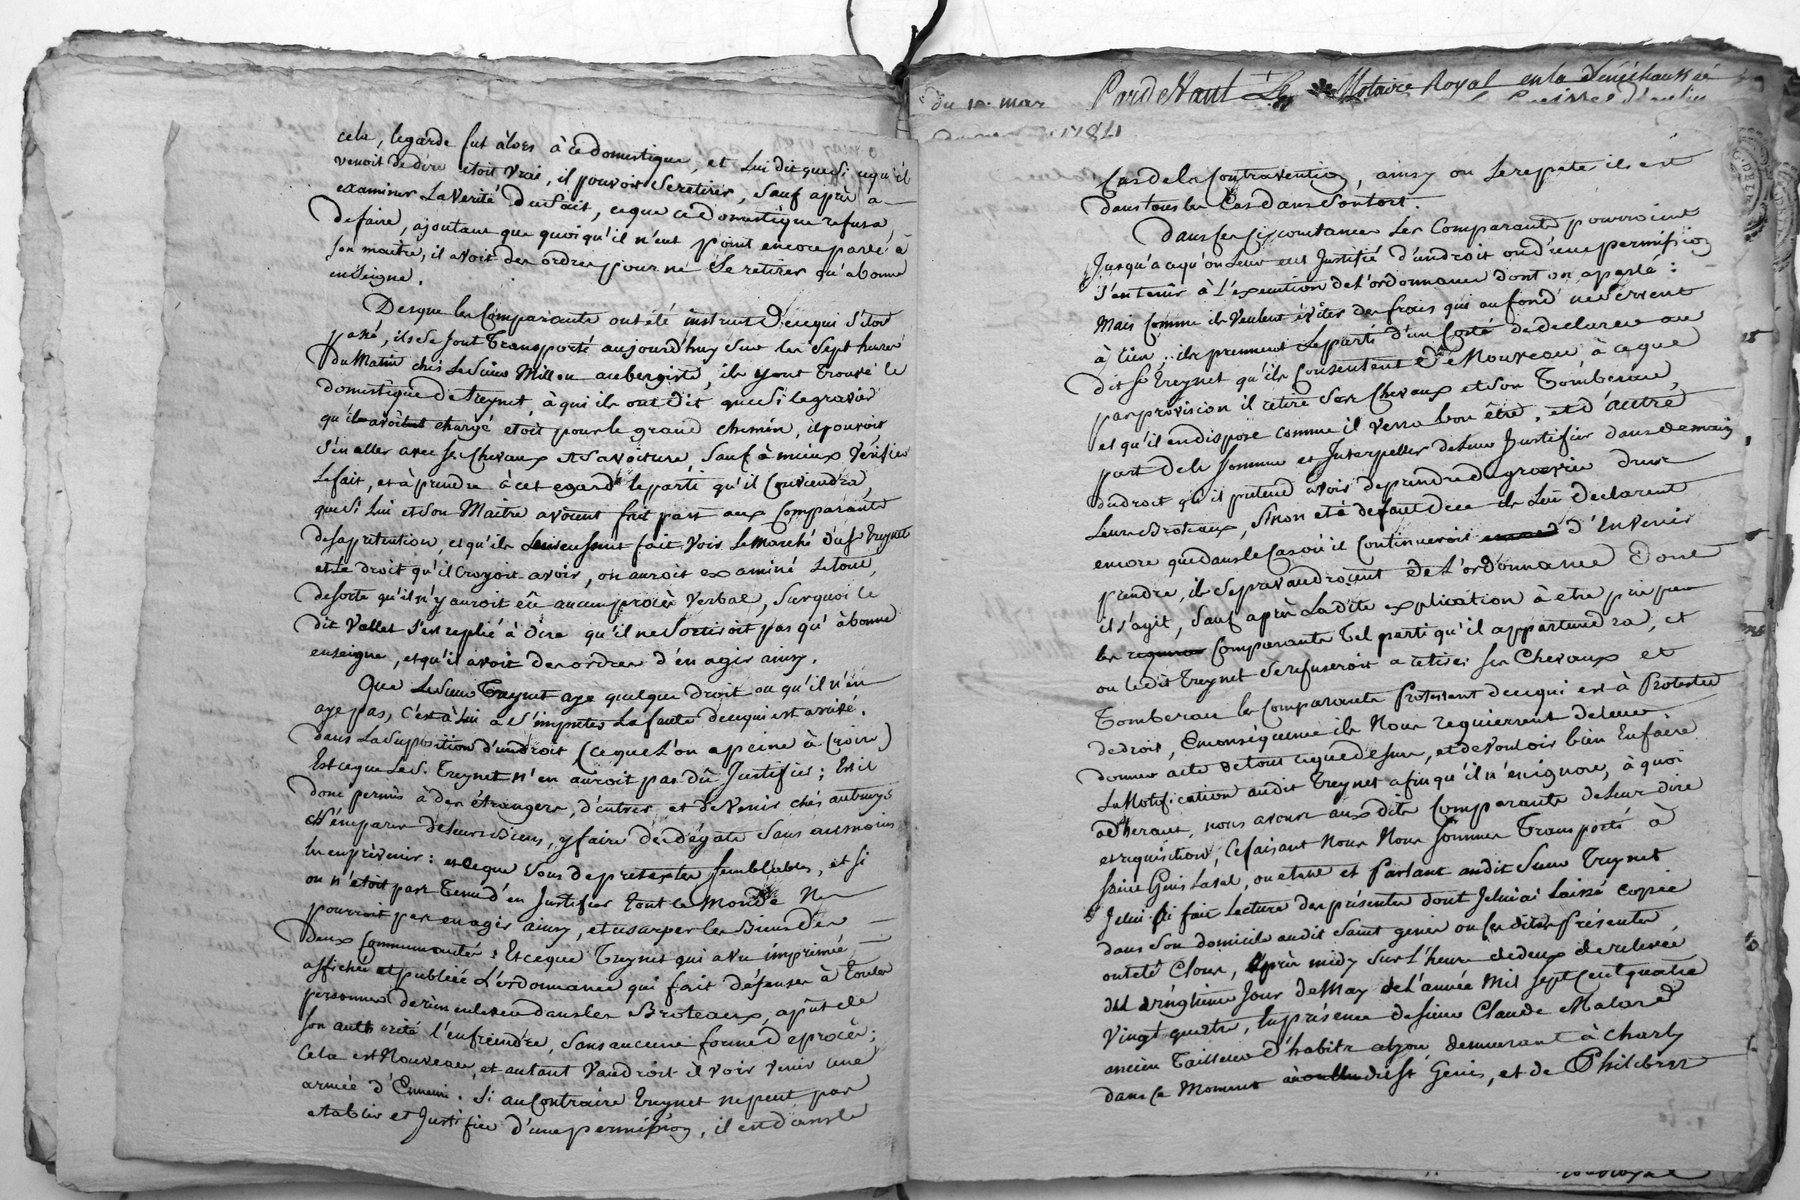 cela, legarde fut alors à ce domestique, et Lui dit que Si ce qu'il
venoit de dire etoit vrai, il pouvoit se retirer, sauf après a
examiner La verité du fait, ce que ce Domestique refusa
de faire, ajoutant que quoi qu'il n'eut point encore parlé à
son maitre, il avoit des ordres pour ne se retirer qu'à bonne
enseigne.
Des que les Comparants ont été instruits de ce qui s'étoit
passé, ils se sont transporté aujourd'huy sur les sept heures
du Matin chés Le Sieur Millon aubergiste, ils y ont trouvé le
domestique de Treynet, à qui ils ont dit que Si le gravier
qu'il avoit chargé etoit pour le grand chemin, il pouvoit
s'en aller avec ses Chevaux et Sa voiture, Sauf à mieux vérifier
Le fait, et à prendre à cet egard le parti qu'il Conviendra,
que Si Lui et Son Maitre avoient fait part aux Comparants
de sa pretention, et qu'ils Leur eussent fait voir Le marché du Sr Treynet
et Le droit qu'il croyoit avoir, on auroit examiné Le tout,
de sorte qu'il n'y auroit eû aucun procès verbal, Sur quoi le
dit Vallet s'est replié à dire qu'il ne Sortiroit pas qu'à bonne
enseigne, et qu'il avoit des ordres d'en agir ainsy.
Que Le Sieur Treynet aye quelque droit ou qu'il n'en
aye pas, C'est à Lui à s'imputer La faute de ce qui est arrivé.
dans La Suposition d'un droit (ce que L'on a peine à Croire)
Est ce que Le S. Treynet n'en auroit pas dû Justifier; Est il
donc permis à des étrangers, d'entrer, et de Venir chés autruy
s'emparer de leurs Biens, y faire des dégats Sans au moins
les en prévenir: est ce que Sous de pretextes semblables, et si
on n'etoit pas Tenu d'en Justifier tout le Monde Ne
pourroit pas en agir ainsy, et usurper les Biens des
Deux Communautés: Est ce que Treynet qui a vu imprimée
affichée et publiée L'ordonnance qui fait défenses à Toutes
personnes de rien enlever dans les Broteaux, a pû de
son authorité l'enfreindre, Sans aucune forme de procès;
Cela est Nouveau, et autant Vaudroit il voir venir une
armée d'Ennemis. Si au Contraire Treynet ne peut pas
etablir et Justifier d'une permission, il est dans le
du 10. mar
1784
Pardevant Le Notaire Royal en la Sénéchaussée
Cas de la Contravention, ainsy on Le repete il est
dans tous les Cas dans Son tort.
Dans ces Circonstances Les Comparants pourroient
Jusqu'a ce qu'on Leur eut Justifié d'un droit ou d'une permission
s'en tenir à L'execution de L'ordonnance dont on a parlé:
Mais Comme ils Veulent éviter des frais qui au fond ne servent
à rien, ils prennent Le parti d'un Costé de declarer au
dit Sr Treynet qu'ils Consentent de Nouveau à ce que
par provision il retire Ses Chevaux et Son Tombereau,
et qu'il en dispose comme il verra bon être, et d'autre
part de le sommer et Interpeller de Leur Justifier dans demain
du droit qu'il pretend avoir de prendre du gravier dans
Leurs Broteaux, Sinon et à defaut de ce ils Lui declarent
encore que dans le Cas où il Continueroit d'en venir
prendre, ils se prevaudroient de L'ordonnance dont
il s'agit, Sauf après La dite explication à etre pris par
les Comparants tel parti qu'il appartiendra, et
ou ledit Treynet se refuseroit a retirer ses Chevaux et
Tombereau les Comparants Protestent de ce qui est à Protester
de droit, En consequence ils Nous requierrent de leur
donner acte de tout ce que dessus, et de vouloir bien En faire
La Notification audit Treynet afin qu'il n'en ignore, à quoi
adherant, nous avons aux dits Comparants de Leur dire
et requisition, Ce faisant Nous Nous sommes Transporté à
saint Genis Laval, ou etant et Parlant audit Sieur Treynet
Je lui ai fait Lecture des présentes dont Je lui ai Laissé copie
dans Son domicile audit Saint genis ou ces dites Présentes
ont eté Closes, après midy Sur l'heure de deux de relevée
du vingtieme Jour de May de L'année Mil sept Cent quatre
Vingt quatre, En présence de sieur Claude Malard
ancien Tailleur d'habits a Lyon demeurant à Charly
dans ce Moment audit St Genis, et de Philibert